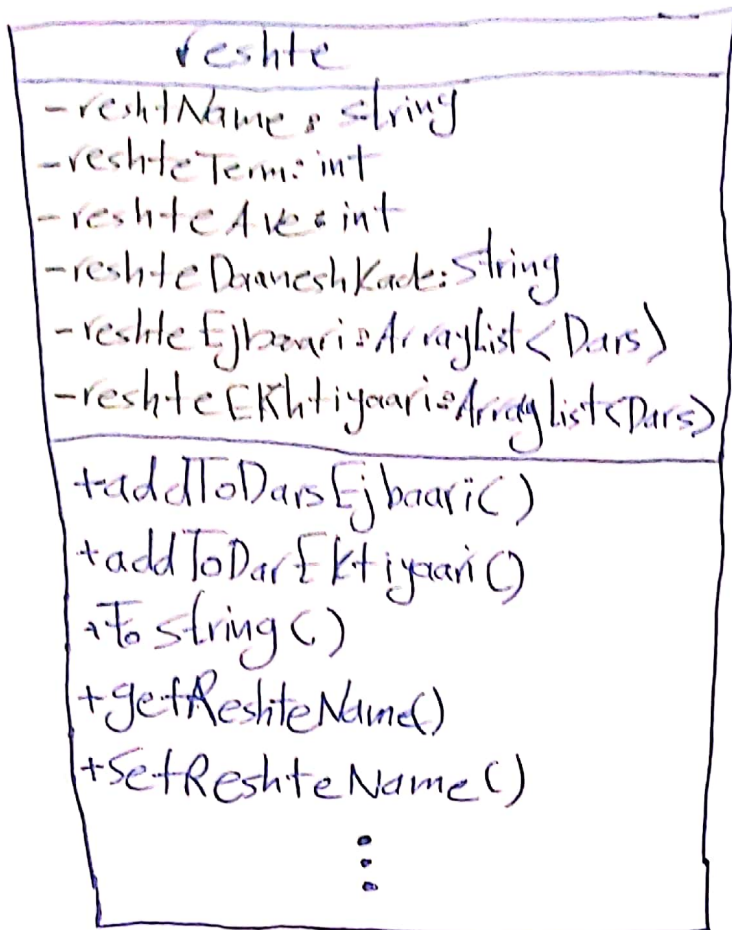 reshte
-reshtName: string
-reshteTerm: int
-reshteAve: int
-reshteDaaneshKade: String
-reshteEjbaari: ArrayList<Dars>
-reshteEKhtiyaari: ArrayList<Dars>
+addToDarsEjbaari()
+addToDarEktiyaari()
+To string()
+getReshteName()
+SetReshteName()
⋮